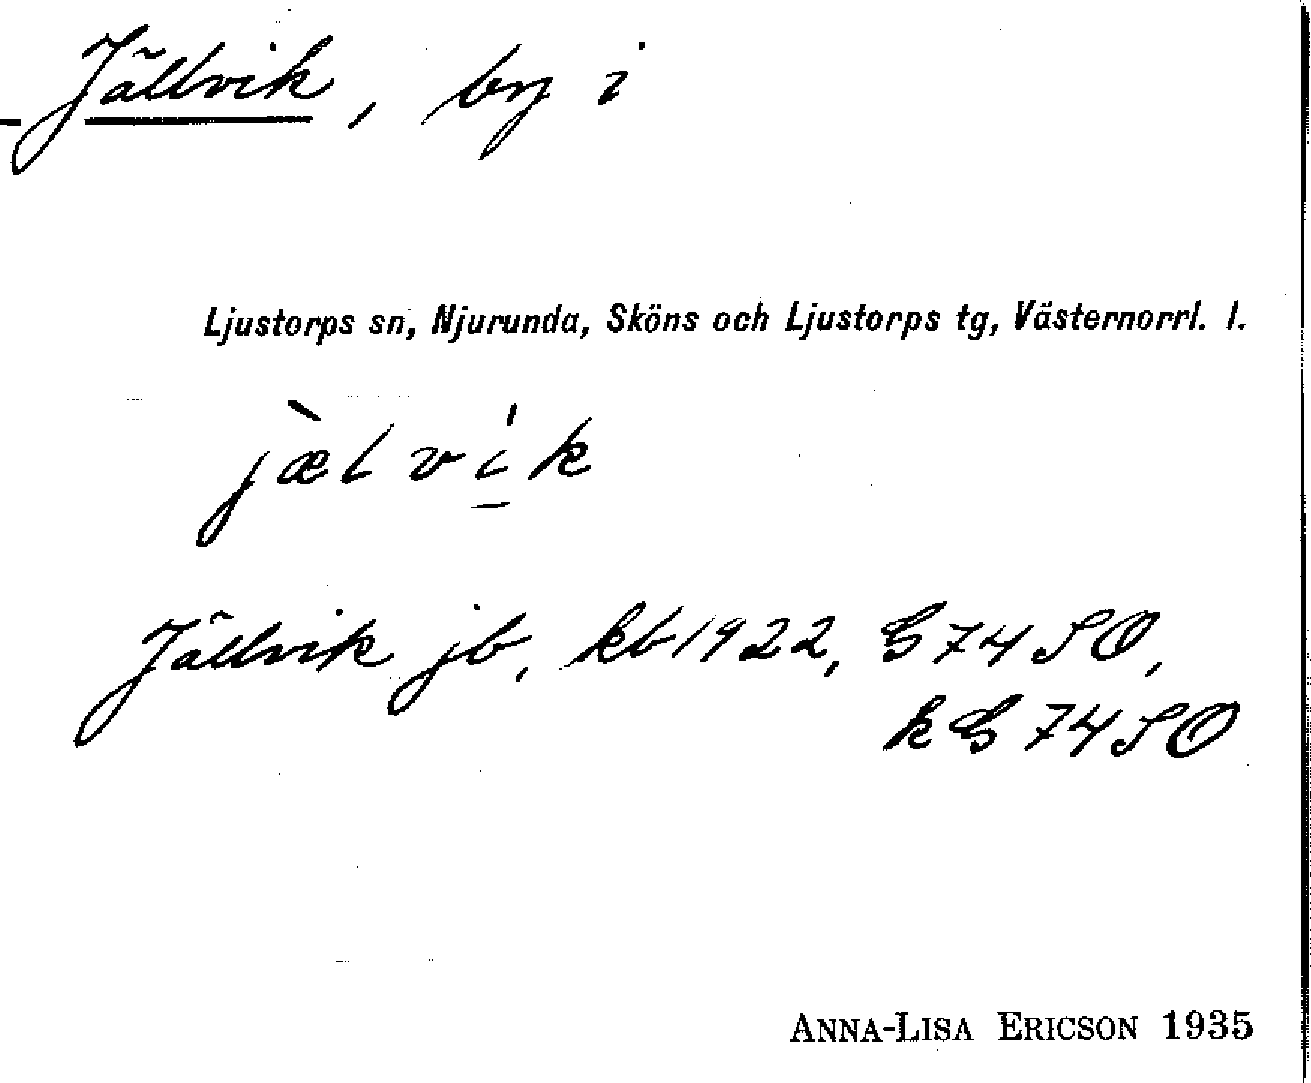 Jällvik, by i
Ljustorps sn, Njurunda, Sköns och Ljustorps tg, Västernorrl. l.
jæ̀lvi̠k
Jällvik jb, kb 1922, G 74 SO,
k G 74 SO
ANNA-LISA ERICSON 1935